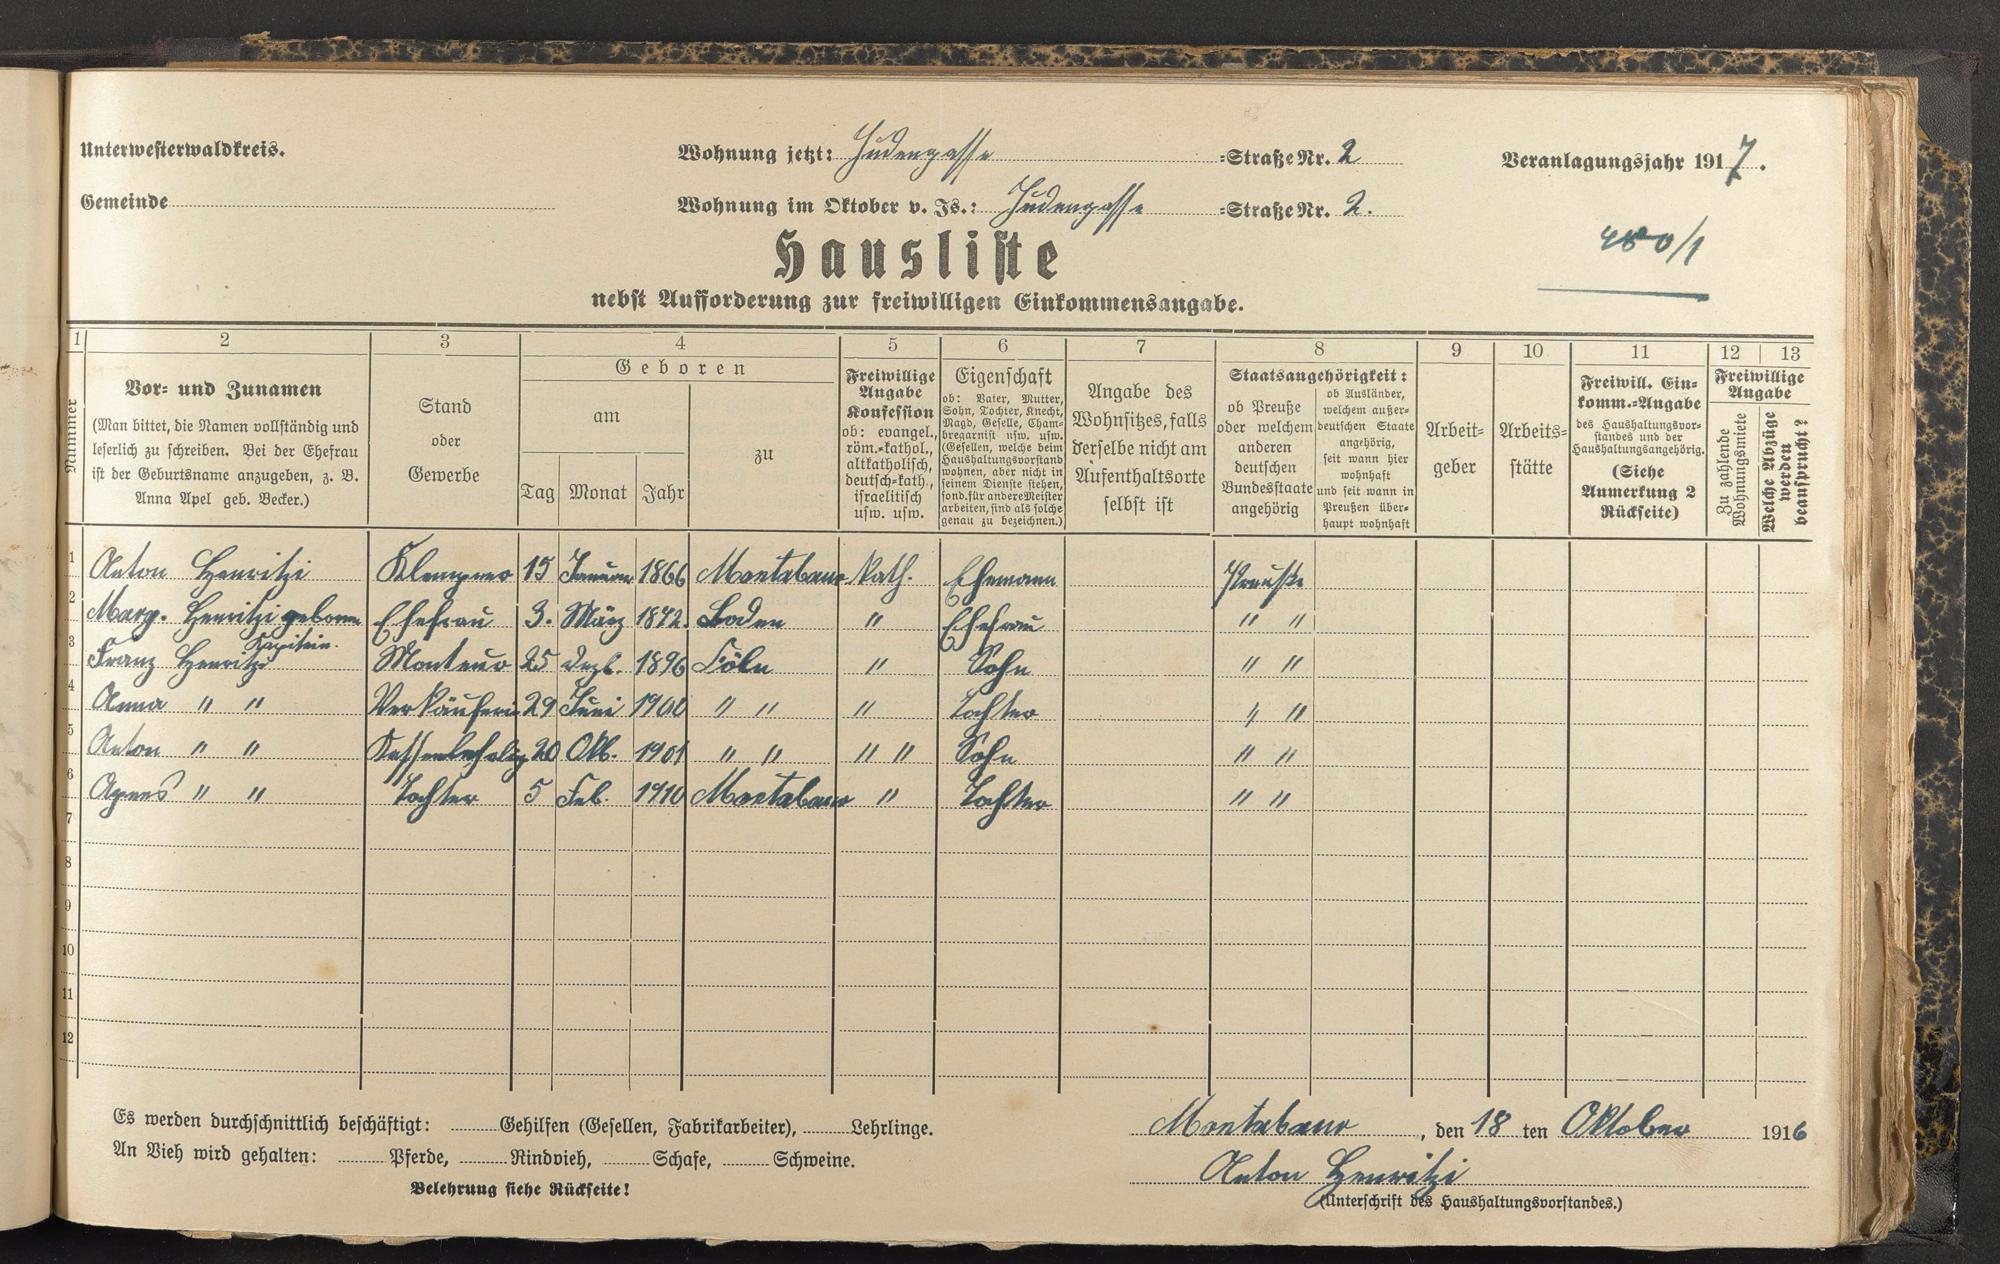 Unterwesterwaldkreis.
Wohnung jetzt: Judengasse =Straße Nr. 2
Veranlagungsjahr 1917.
Gemeinde
Wohnung im Oktober v. Js.: Judengasse =Straße Nr. 2.
480/1
Hausliste
nebst Aufforderung zur freiwilligen Einkommensangabe.
1 2 3 4 5 6 7 8 9 10 11 12 13
Nummer
Vor- und Zunamen
(Man bittet, die Namen vollständig und
leserlich zu schreiben. Bei der Ehefrau
ist der Geburtsname anzugeben, z. B.
Anna Apel geb. Becker.)
Stand
oder
Gewerbe
Geboren
am
Tag Monat Jahr
zu
Freiwillige
Angabe
Konfession
ob: evangel.,
röm.-kathol.,
altkatholisch,
deutsch-kath.,
israelitisch
usw. usw.
Eigenschaft
ob: Vater, Mutter,
Sohn, Tochter, Knecht,
Magd, Geselle, Cham-
bregarnist usw. usw.
(Gesellen, welche beim
Haushaltungsvorstand
wohnen, aber nicht in
seinem Dienste stehen,
sond. für andere Meister
arbeiten, sind als solche
genau zu bezeichnen.)
Angabe des
Wohnsitzes, falls
derselbe nicht am
Aufenthaltsorte
selbst ist
Staatsangehörigkeit:
ob Preuße
oder welchem
anderen
deutschen
Bundesstaate
angehörig
ob Ausländer,
welchem außer-
deutschen Staate
angehörig,
seit wann hier
wohnhaft
und seit wann in
Preußen über-
haupt wohnhaft
Arbeit-
geber
Arbeits-
stätte
Freiwill. Ein-
komm.-Angabe
des Haushaltungsvor-
standes und der
Haushaltungsangehörig.
(Siehe
Anmerkung 2
Rückseite)
Freiwillige
Angabe
Zu zahlende
Wohnungsmiete
Welche Abzüge
werden
beansprucht?
1 Anton Henritzi Klempner 15 Januar 1866 Montabaur Kath. Ehemann Preuße
2 Marg. Henritzi geborne Ehefrau 3. März 1872. Boden " Ehefrau " "
Kapitain.
3 Franz Henritzi Monteur 25 Dezb. 1896 Cöln " Sohn " "
4 Anna " " Verkäuferin 29 Juni 1900 " " " Tochter " "
5 Anton " " 20 Okt. 1901 " " " " Sohn " "
6 Agnes " " Tochter 5 Feb. 1910 Montabaur " Tochter " "
7
8
9
10
11
12
Es werden durchschnittlich beschäftigt: Gehilfen (Gesellen, Fabrikarbeiter), Lehrlinge.
An Vieh wird gehalten: Pferde, Rindvieh, Schafe, Schweine.
Belehrung siehe Rückseite!
Montabaur, den 18 ten Oktober 1916
Anton Henritzi
(Unterschrift des Haushaltungsvorstandes.)